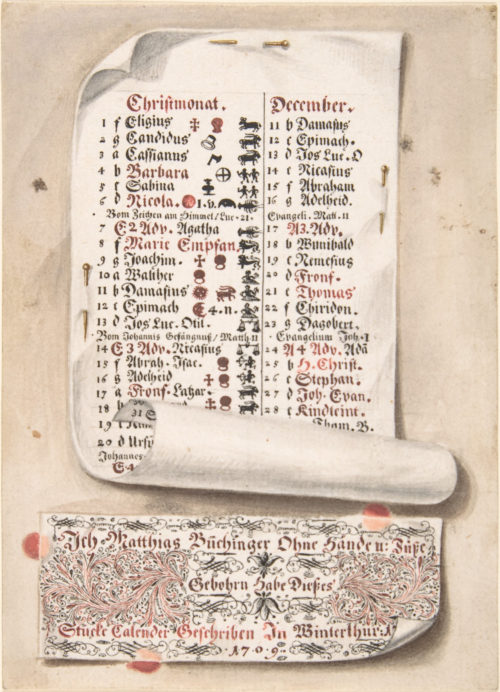 Christmonat.
1 f Eligius
2 g Candidus
3 a Cassianus
4 b Barbara
5 c Sabina
6 d Nicola. 1. v.
Vom Zeichen am Himmel/Luc. 21.
7 E 2 Adv. Agatha
8 f Marie Empfan.
9 g Joachim.
10 a Walther
11 b Damasius
12 c Epimach 4. n.
13 d Jos Luc. Otil.
Vom Johannis Gefängnuß/Matth 11
14 E 3 Adv. Nicasius
15 f Abrah. Isac.
16 g Adelheid
17 a Fronf. Lazar.
18 b
31 S
19 c
20 d Ursi
Johannes
E 4
December.
11 b Damasius
12 c Epimach.
13 d Jos Luc. O
14 e Nicasius
15 f Abraham
16 g Adelheid.
Evangeli. Math. 11
17 A3. Adv.
18 b Wunibald
19 c Nemesius
20 d Fronf.
21 e Thomas
22 f Chiridon.
23 g Dagobert.
Evangelium Joh. 1
24 A 4 Adv. Adā
25 b H. Christ.
26 c Stephan.
27 d Joh. Evan.
28 e Kindleint.
Tham. B.
Ich Matthias Büchinger Ohne Hände u: Füße
Gebohrn Habe Dießes
Stucke Calender Geschriben In Winterthur:
1709